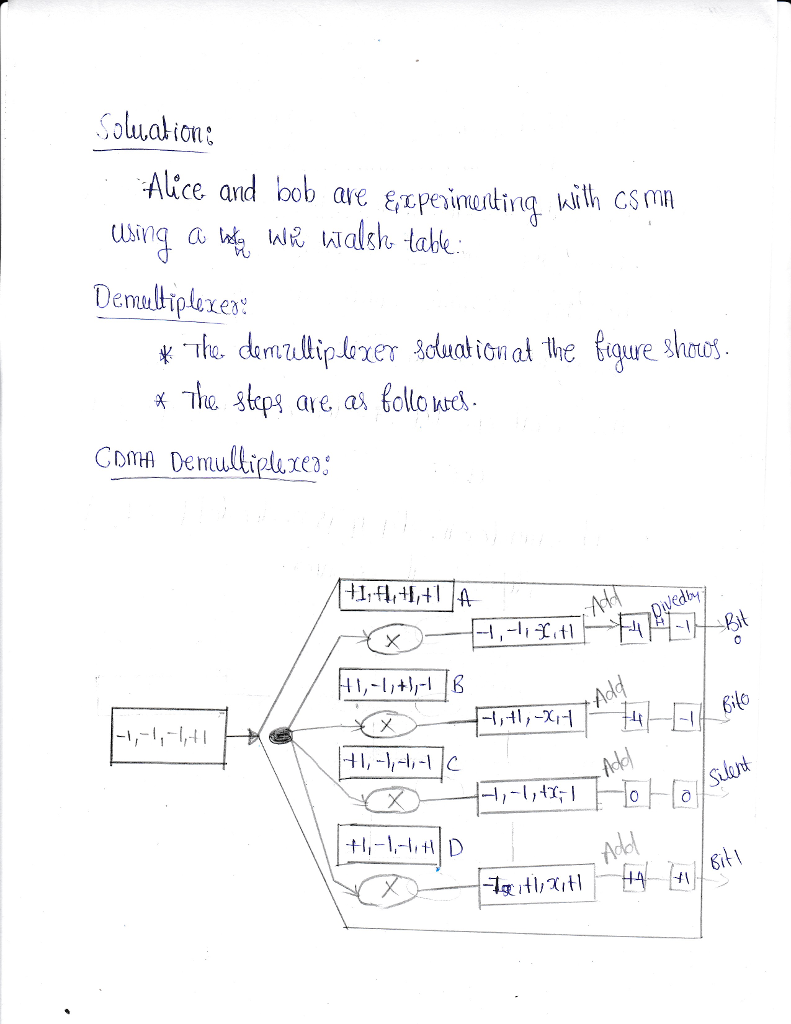 Soluation:
Alice and bob are Experimenting with CSMA
using a W2 Walsh table:
Demultiplexer:
* The demultiplexer soluation at the figure shows.
* The steps are as follows.
CDMA Demultiplexer:
+1,+1,+1,+1 A
X
-1,-1,x,+1
Add
-4
Divedby
4
-1
Bit
0
+1,-1,+1,-1 B
X
-1,+1,-x,-1
Add
-4
-1
Bit0
-1,-1,-1,+1
+1,-1,-1,-1 C
X
-1,-1,+x,-1
Add
0
0
Silent
+1,-1,-1,+1 D
X
+1,x,+1
Add
+4
+1
Bit 1